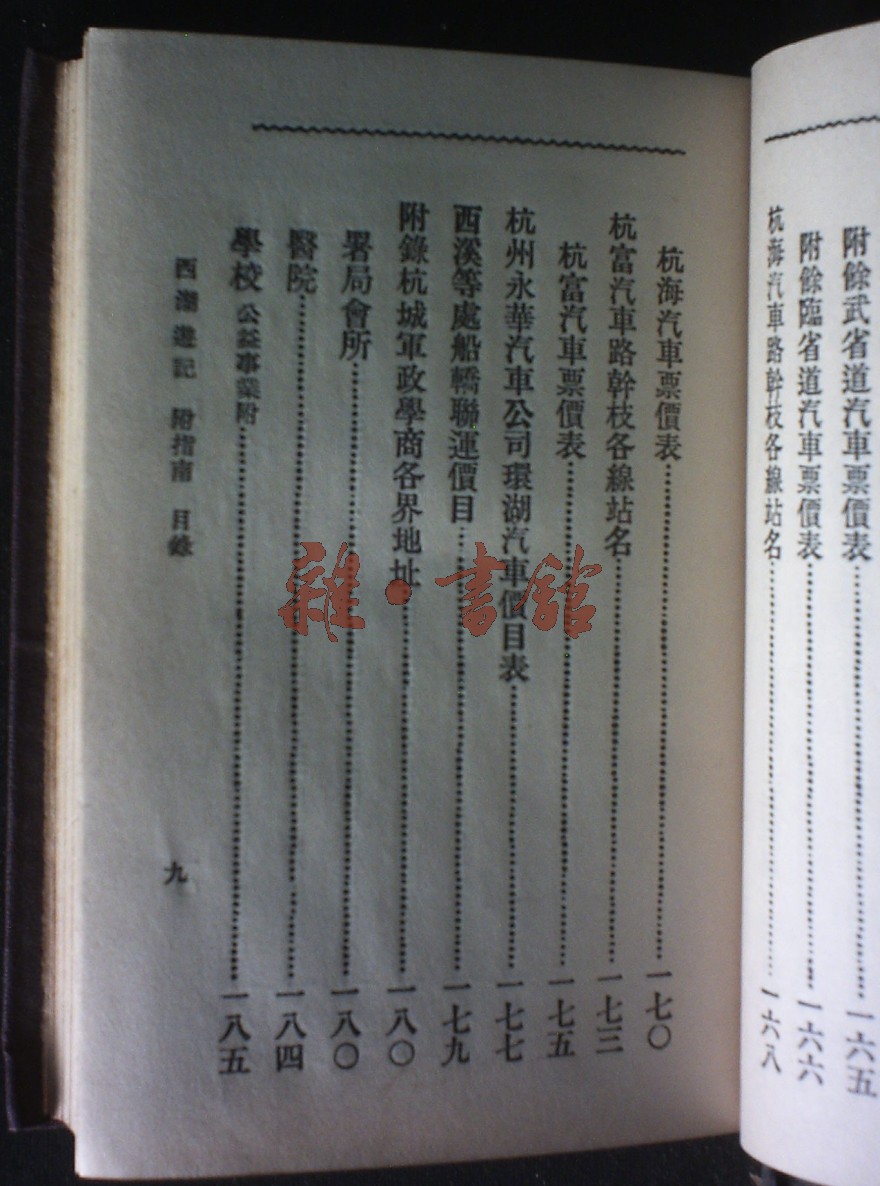 附餘武省道汽車票價表……一六五
附餘臨省道汽車票價表……一六六
杭海汽車路幹枝各線站名……一六八
杭海汽車票價表……一七〇
杭富汽車路幹枝各線站名……一七三
杭富汽車票價表……一七五
杭州永華汽車公司環湖汽車價目表……一七七
西溪等處船轎聯運價目……一七九
附錄杭城軍政學商各界地址……一八〇
署局會所……一八〇
醫院……一八四
學校 公益事業附……一八五
西湖遊記 附指南 目錄
九
雜·書館